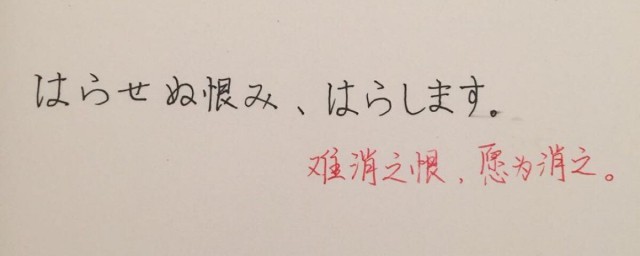 はらせぬ恨み、はらします。
难消之恨，愿为消之。